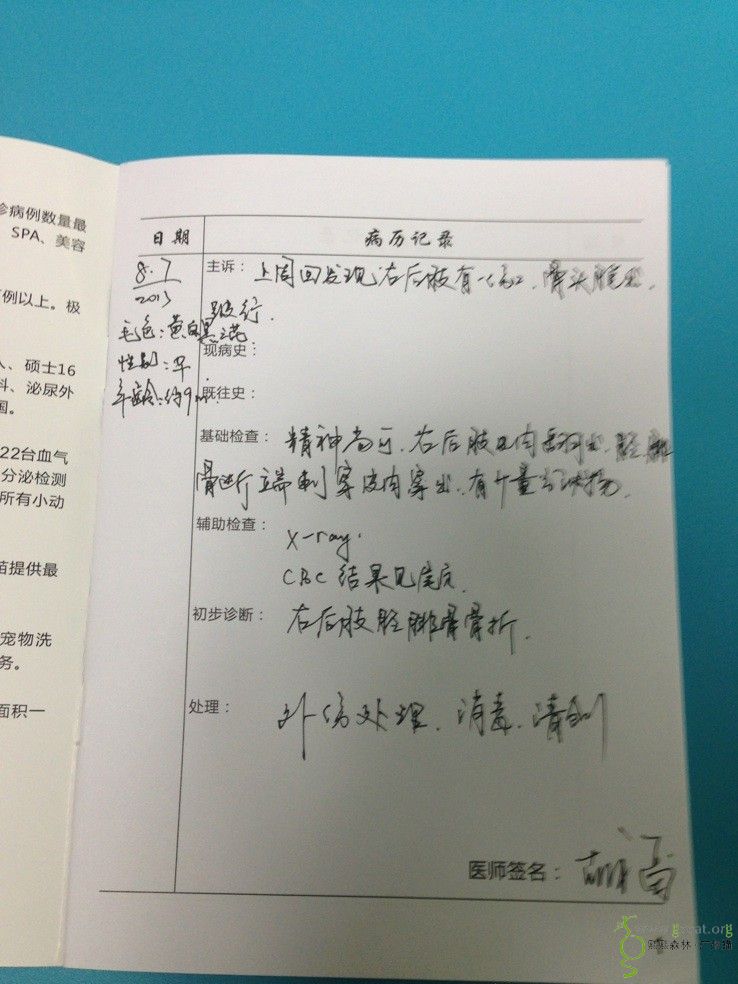 诊病例数量最
SPA、美容
例以上。极
、硕士16
科、泌尿外
国。
22台血气
分泌检测
所有小动
苗提供最
宠物洗
务。
面积一
日期
病历记录
8.7
2013
毛色：黄白黑三花
性别：早
年龄：约9m
主诉：上周四发现右后肢有一伤口，骨头
跛行．
现病史：
既往史：
基础检查：精神尚可．右后肢见肉 胫腓
骨远端刺穿皮肉穿出．有少量分泌物．
辅助检查：
X-ray．
CBC 结果见尾页．
初步诊断：右后肢胫腓骨骨折．
处理：外伤处理．消毒．清创
医师签名：
www.gzcat.org